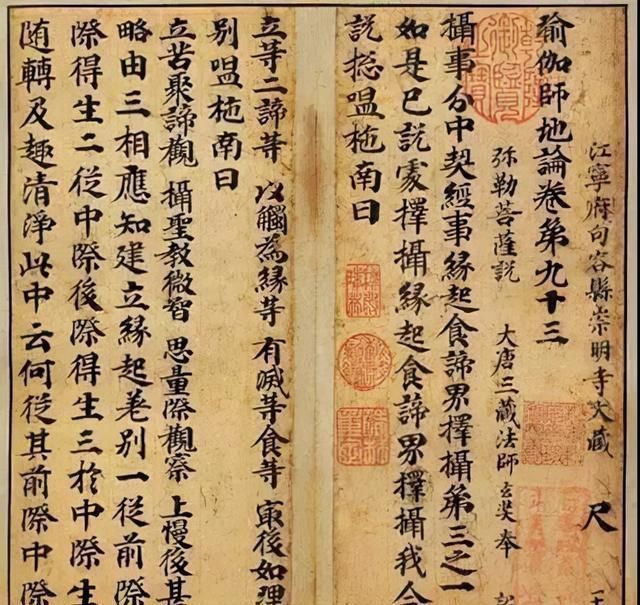 江寧府句容縣崇明寺大藏 尺
瑜伽師地論卷第九十三
弥勒菩薩説 大唐三藏法師玄奘奉
攝事分中契經事緣起食諦界擇攝第三之一
如是已説處擇攝緣起食諦界擇攝我今
説揔嗢柁南曰
立等二諦等 以觸為緣等 有滅等食等 寂後如理
別嗢柁南曰
立苦聚諦觀 攝聖教微智 思量際觀察 上慢後甚
略由三相應知建立緣起差別一從前際
際得生二從中際後際得生三於中際生
随轉及趣清淨此中云何從其前際中際